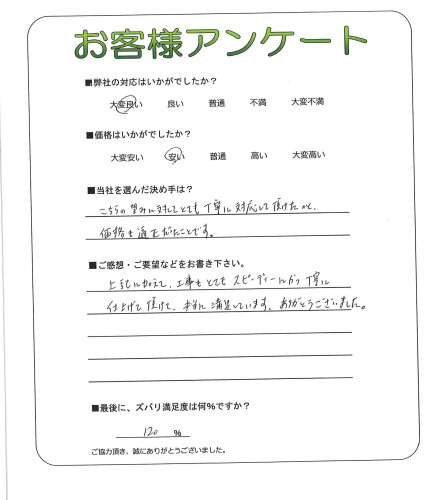 お客様アンケート
■弊社の対応はいかがでしたか?
大変良い 良い 普通 不満 大変不満
■価格はいかがでしたか?
大変安い 安い 普通 高い 大変高い
■当社を選んだ決め手は?
こちらの望みに対してとても丁寧に対応して頂けたかと、
価格も適正だったことです。
■ご感想・ご要望などをお書き下さい。
上記に加えて、工事もとてもスピーディーにかつ丁寧に
仕上げて頂けて、本当に満足しています、ありがとうございました。
■最後に、ズバリ満足度は何%ですか?
120 %
ご協力頂き、誠にありがとうございました。